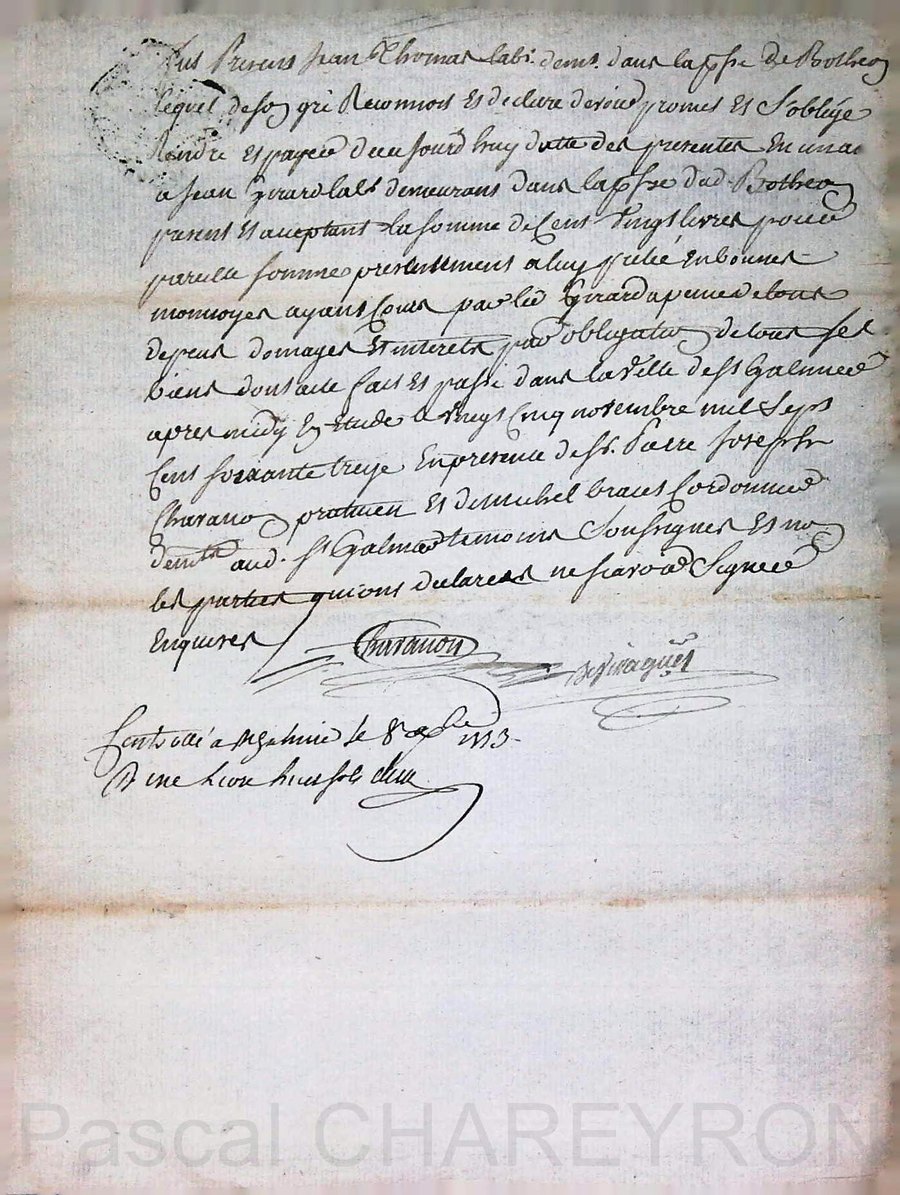 fus Present Jean Thomas lab.r dem.t dans la psse de Botheon
lequel de son gré Reconnois Et declare devoir promet Et s'oblige
Rendre Et payer d'eu Jourd'huy datte des presentes En un an
a Jean Girard lab.r demeurant dans la psse dud. Botheon
present Et aceptant la somme de Cent Vingt livres pour
pareille somme presentement a luy preté En bonnes
monnoyes ayant Cours par led Girard a peine de tous
depens domages Et interets par obligation de tous ses
biens dont acte fait Et passé dans la Ville de St Galmier
apres midy En Etude le Vingt Cinq novembre mil Sept
Cent soixante treize En presence de Sr. Pierre Joseph
Charanon praticien Et de Michel Cordonnier
demts aud. St Galmier temoins Soussignes Et non
les parties qui ont declarees ne scavoir Signer
Enquises
Charanon
Controllé a St Galmier le 8 Xbre 1773
R une livre huit sols
Pascal CHAREYRON